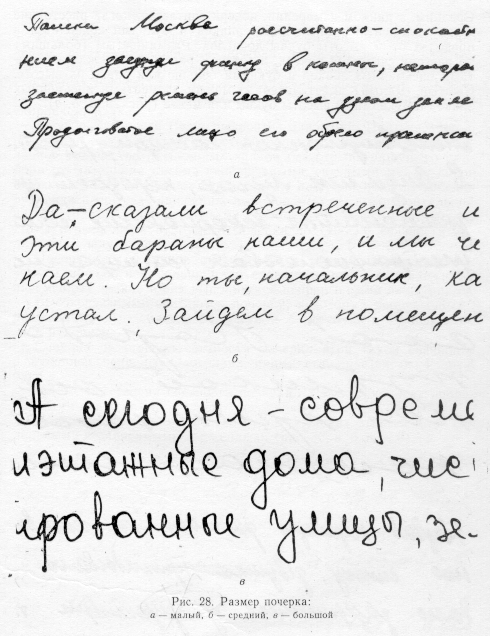 Москва рассчитанно-спокойн
нием в которой
на
Продолговатое лицо его
а
Да-сказали встреченные и
эти бараны наши, и мы че
каем. Но ты, начальник, ка
устал. Зайдем в помещен
б
А сегодня - совреме
иэтажные дома, чис
ированные улицы, зе-
в
Рис. 28. Размер почерка:
а — малый, б — средний, в — большой